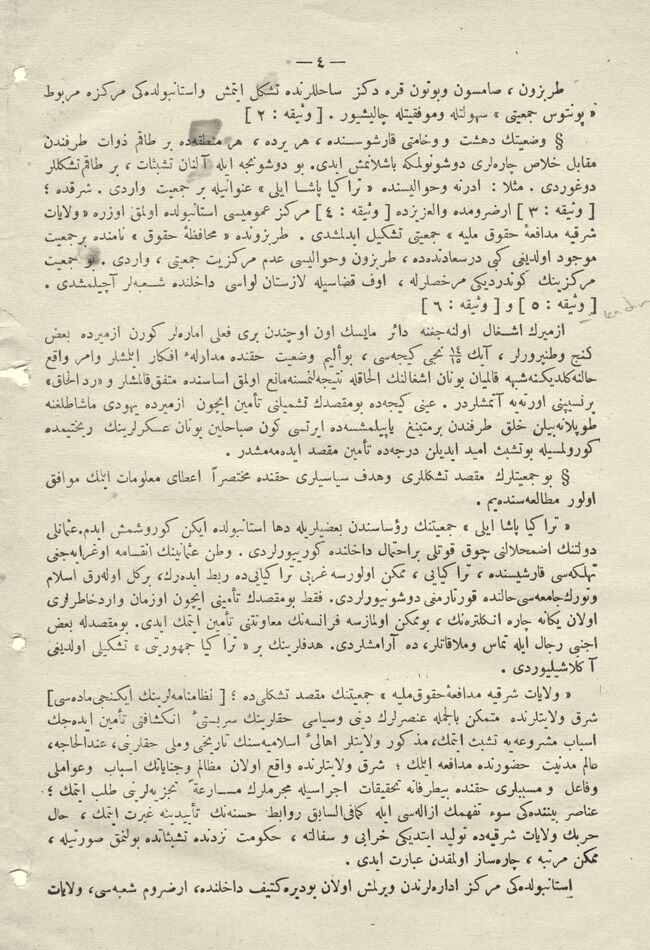 — ٤ —
طربزون ، صامسون وبوتون قره دكز ساحللرنده تشكل ايتمش واستانبولده‌كى مركزه مربوط
« پونتوس جمعيتى » سهولتله وموفقيتله چاليشيور . [ وثيقه : ٢ ]
§ وضعيتك دهشت و وخامتى قارشوسنده ، هر يرده ، هر منطقه‌ده بر طاقم ذوات طرفندن
مقابل خلاص چاره‌لرى دوشونولمكه باشلانمش ايدى. بو دوشونجه ايله آلنان تشبثات ، بر طاقم تشكللر
دوغوردى . مثلا : ادرنه وحواليسنده « تراكيا پاشا ايلى » عنوانيله بر جمعيت واردى . شرقده ؛
[ وثيقه : ٣ ] ارضرومده والعزيزده [ وثيقه : ٤ ] مركز عموميسى استانبولده اولمق اوزره « ولايات
شرقيه مدافعهٔ حقوق مليه » جمعيتى تشكيل ايدلمشدى . طربزونده « محافظهٔ حقوق » نامنده برجمعيت
موجود اولديغى كبى درسعادتده‌ده ، طربزون وحواليسى عدم مركزيت جمعيتى ، واردى . بو جمعيت
مركزينك كوندرديكى مرخصلرله ، اوف قضاسيله لازستان لواسى داخلنده شعبه‌لر آچيلمشدى .
[ وثيقه : ٥ ] و [ وثيقه : ٦ ]
ازميرك اشغال اولنه‌جغنه دائر مايسك اون اوچندن برى فعلى اماره‌لر كورن ازميرده بعض
كنج وطنپرورلر ، آيك ١٤/١٥ نجى كيجه‌سى ، بوأليم وضعيت حقنده مداولهٔ افكار ايلمشلر وامر واقع
حالنه‌كلديكنه‌شبهه قالميان يونان اشغالنك الحاقله نتيجه‌لنمسنه‌مانع اولمق اساسنده متفق‌قالمشلر و «رد الحاق»
پرنسيپنى اورته‌يه آتمشلردر . عينى كيجه‌ده بومقصدك تشميلنى تأمين ايچون ازميرده يهودى ماشاطلغنه
طوپلانه‌بيلن خلق طرفندن برمتينغ ياپيلمشسه‌ده ايرتسى كون صباحلين يونان عسكرلرينك ريختيمده
كورولمسيله بوتشبث اميد ايديلن درجه‌ده تأمين مقصد ايده‌مه‌مشدر .
§ بو جمعيتلرك مقصد تشكللرى وهدف سياسيلرى حقنده مختصراً اعطاى معلومات ايتمك موافق
اولور مطالعه‌سنده‌يم .
« تراكيا پاشا ايلى » جمعيتنك رؤساسندن بعضيلريله دها استانبولده ايكن كوروشمش ايدم.عثمانلى
دولتنك اضمحلالنى چوق قوتلى براحتمال داخلنده كورييورلردى . وطن عثمانينك انقسامه اوغرايه‌جغى
تهلكه‌سى قارشيسنده ، تراكيايى ، ممكن اولورسه غربى تراكيايى‌ده ربط ايده‌رك، بركل اوله‌رق اسلام
وتورك‌جامعه‌سى حالنده قورتارمغى دوشونيورلردى. فقط بومقصدك تأمينى ايچون اوزمان واردخاطرلرى
اولان يكانه چاره انكلتره‌نك ، بوممكن اولمازسه فرانسه‌نك معاونتنى تأمين ايتمك ايدى. بومقصدله بعض
اجنبى رجال ايله تماس وملاقاتلر، ده آرامشلردى. هدفلرينك بر « تراكيا جمهوريتى » تشكيلى اولديغى
آكلاشيليوردى .
« ولايات شرقيه مدافعهٔ حقوق مليه » جمعيتنك مقصد تشكلى‌ده ؛ [ نظامنامه‌لرينك ايكنجى ماده‌سى]
شرق ولايتلرنده متمكن بالجمله عنصرلرك دينى وسياسى حقلرينك سربستىٔ انكشافنى تأمين ايده‌جك
اسباب مشروعه‌يه تشبث ايتمك، مذكور ولايتلر اهالئ اسلاميه‌سنك تاريخى وملى حقلرينى، عندالحاجه،
عالم مدنيت حضورنده مدافعه ايتمك ؛ شرق ولايتلرنده واقع اولان مظالم وجناياتك اسباب وعواملى
وفاعل و مسببلرى حقنده بيطرفانه تحقيقات اجراسيله مجرملرك مسارعةً تجزيه‌لرينى طلب ايتمك ؛
عناصر بيننده‌كى سوء تفهمك ازاله‌سى ايله كمافى‌السابق روابط حسنه‌نك تأييدينه غيرت ايتمك ، حال
حربك ولايات شرقيه‌ده توليد ايتديكى خرابى و سفالته ، حكومت نزدنده تشبثاتده بولنمق صورتيله ،
ممكن مرتبه ، چاره‌ساز اولمقدن عبارت ايدى .
استانبولده‌كى مركز اداره‌لرندن ويرلمش اولان بوديره‌كتيف داخلنده، ارضروم شعبه‌سى، ولايات